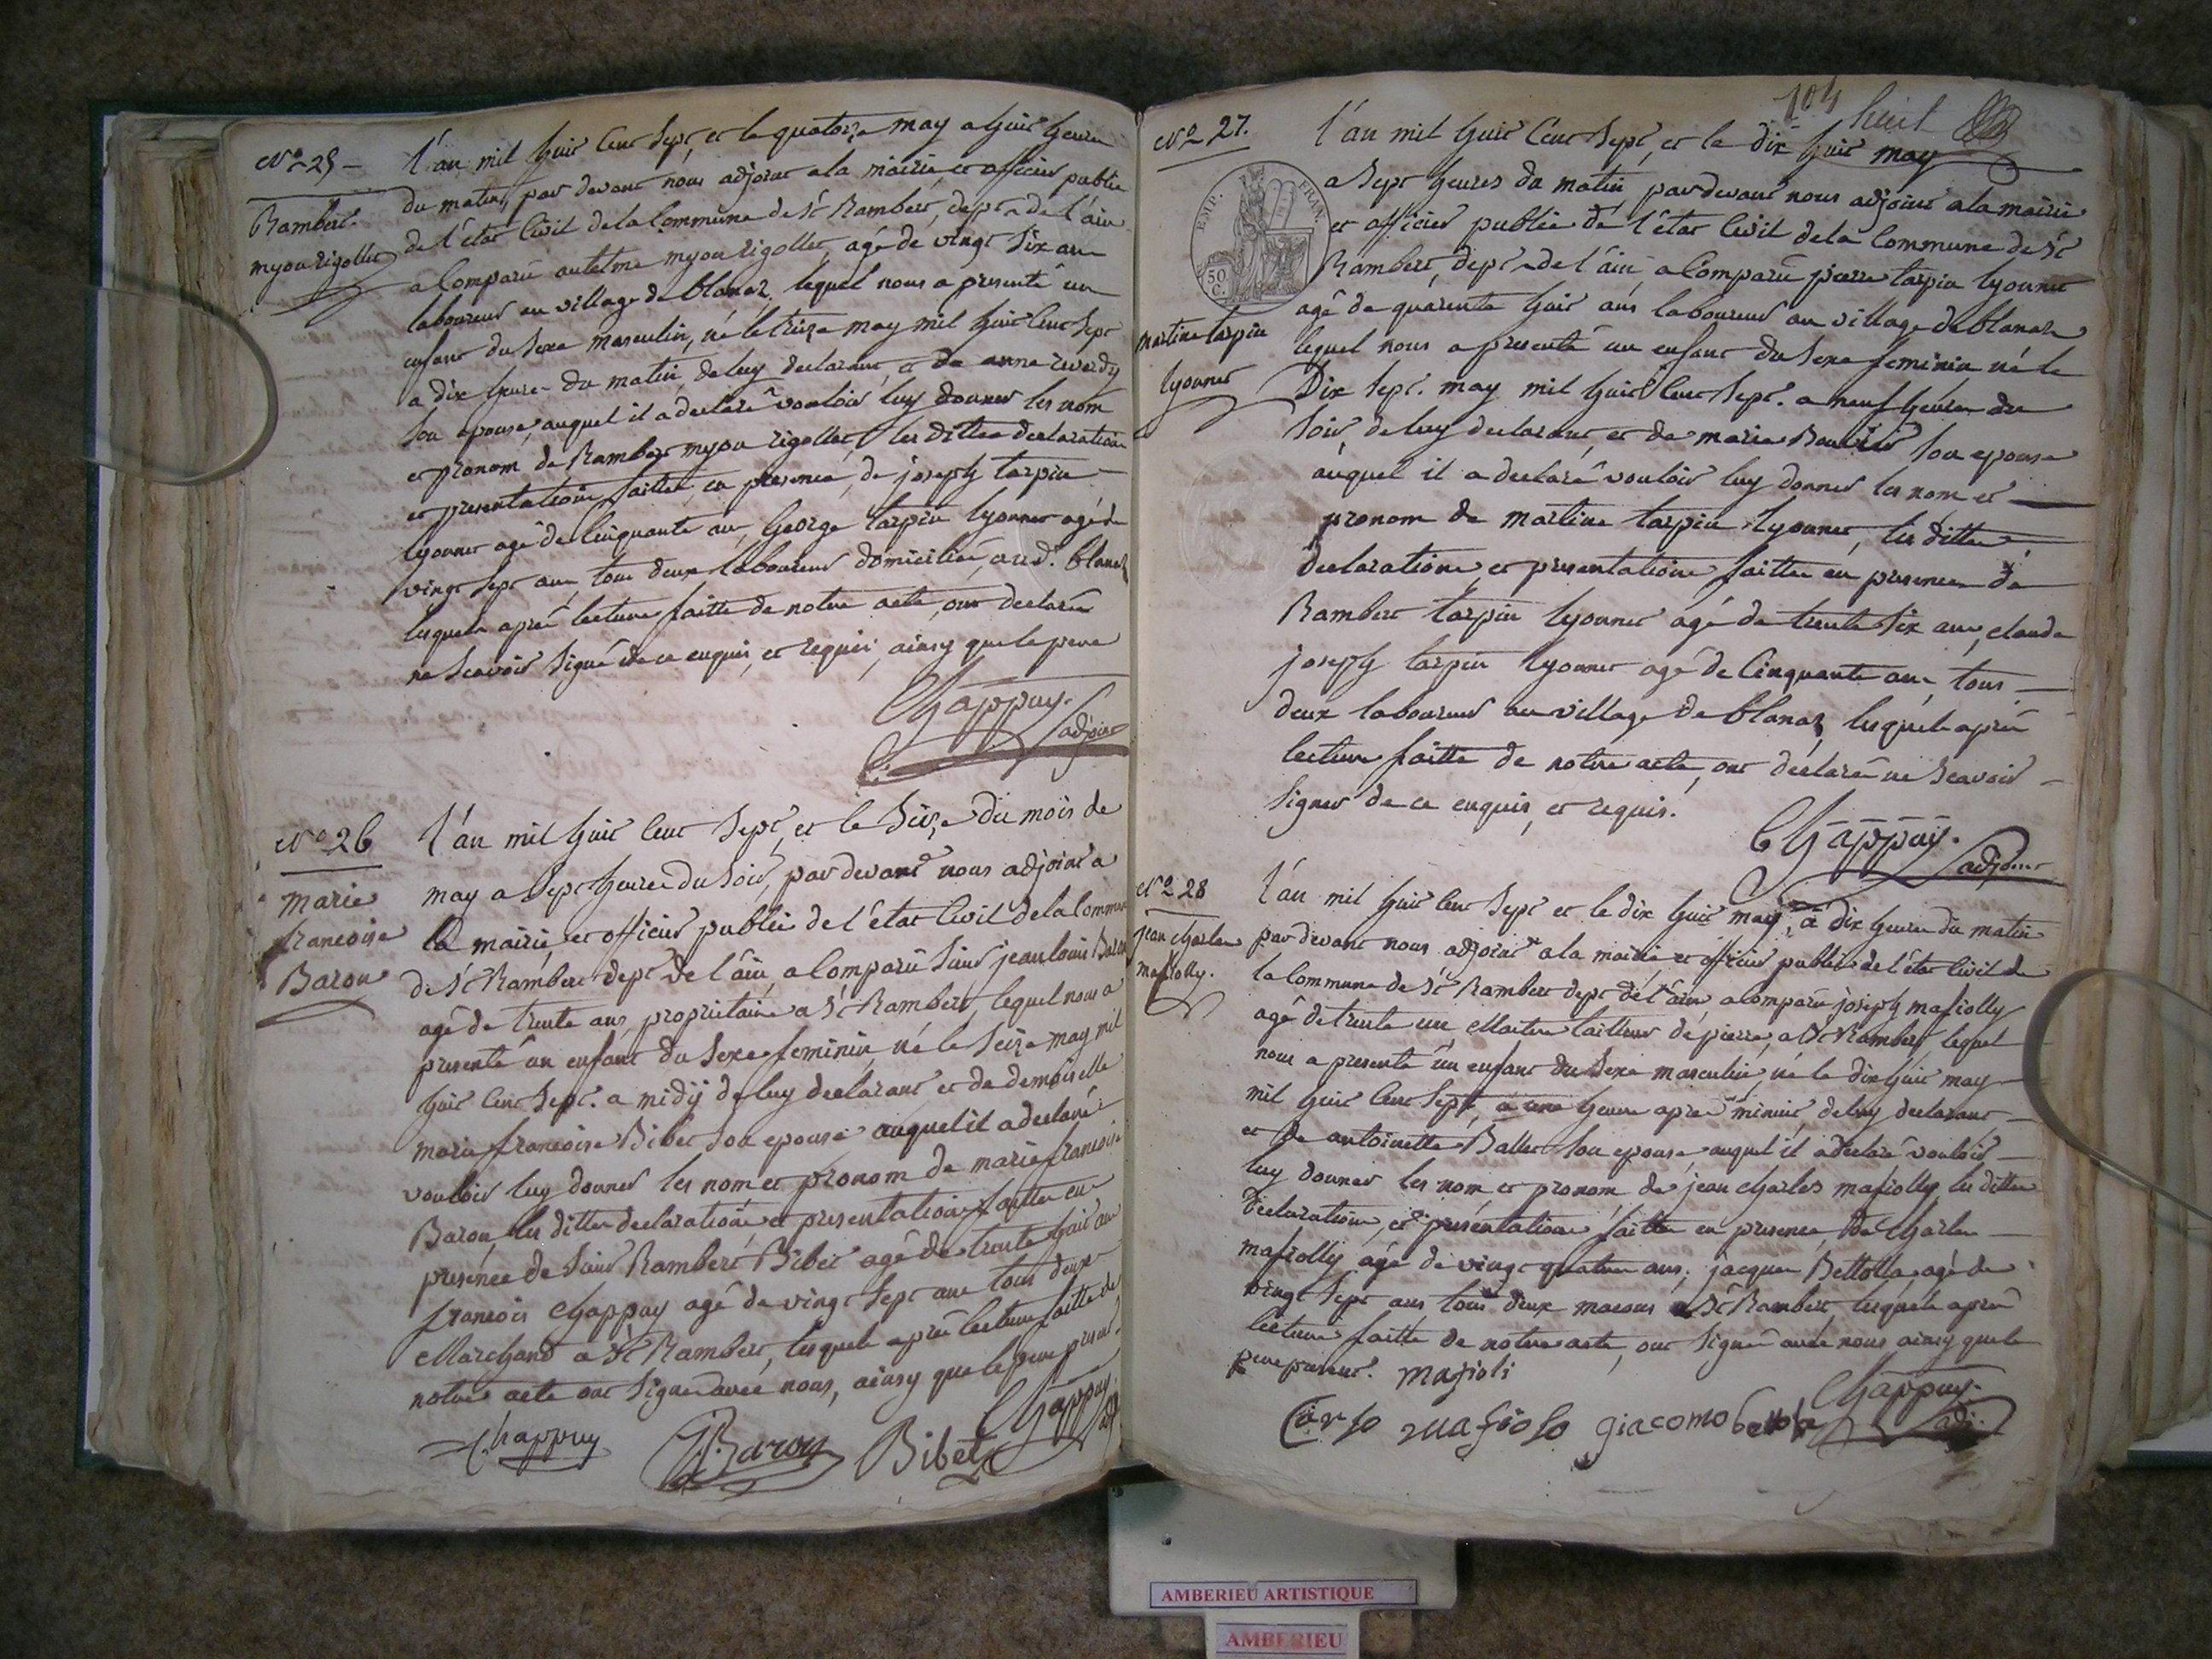 N.o 25 -
Rambert
myon rigollet
l'an mil huit cent sept, et le quatorze may a huit heures
du matin, par devant nous adjoint a la mairie et officier public
de l'état civil de la Commune de St Rambert, dept de l'ain
a Comparu antelme myon rigollet, agé de vingt six ans
laboureur au village de blanaz, lequel nous a presenté un
enfant du sexe masculin, né le treize may mil huit cent sept
a dix heures du matin, de luy declarant, et de anne reverdy
son epouse, auquel il a declaré vouloir luy donner les nom
et pronom de Rambert myon rigollet, les dittes declaration
et presentation faittes en presence, de joseph tarpin
lyonnet agé de Cinquante ans, George tarpin lyonnet agé de
vingt sept ans, tous deux laboureurs domiciliés, aud. blanaz
lesquels après lecture faitte de notre acte, ont declarés
ne scavoir signé de ce enquis, et requis, ainsy que le pere
Chappuy.
adjoint
N.o 26
marie
francoise
Baron
l'an mil huit cent sept, et le seize du mois de
may a sept heures du soir, par devant nous adjoint a
la mairie, et officier public de l'état Civil de la Commune
de St Rambert dept de l'ain, a Comparu sieur jean louis Baron
agé de trente ans, proprietaire a St Rambert, lequel nous a
presenté un enfant du sexe feminin, né le seize may mil
huit cent sept. a midÿ de luy declarant et de demoiselle
marie francoise Bibet son epouse auquel il a declaré
vouloir luy donner les nom et pronom de marie francoise
Baron, les dittes declaration et presentation faittes en
presence de sieur Rambert Bibet agé de trente huit ans
francois Chappuy agé de vingt sept ans tous deux
Marchand a St Rambert, lesquels après lecture faitte de
notre acte ont signé avec nous, ainsy que le pere present.
Chappuy
adj.
Chappuy
Baron
Bibet
104
huit
N.o 27.
EMP. FRAN.
50 C.
martine tarpin
lyonnet
l'an mil huit Cent sept, et le dix huit may
a sept heures du matin, par devant nous adjoint a la mairie
et officier public de l'état Civil de la Commune de St
Rambert, dept de l'ain, a Comparu pierre tarpin lyonnet
agé de quarente huit ans laboureur au village de blanaz
lequel nous a presenté un enfant du sexe feminin né le
Dix sept. may mil huit Cent sept. a neuf heures du
soir, de luy declarant, et de marie son epouse
auquel il a declaré vouloir luy donner les nom et
pronom de martine tarpin lyonnet, les dittes
declaration, et presentation faittes en presence de
Rambert tarpin lyonnet agé de trente six ans, claude
joseph tarpin lyonnet agé de Cinquante ans, tous
deux laboureurs au village de blanaz, lesquels après
lecture faitte de notre acte, ont declarés ne scavoir
signer de ce enquis, et requis.
Chappuy.
adjoint
N.o 28
jean charles
mafiolly.
l'an mil huit cent sept et le dix huit may, a dix heures du matin
par devant nous adjoint a la mairie et officier public de l'état Civil de
la Commune de St Rambert dept de l'ain a Comparu joseph mafiolly
agé de trente un Maitre tailleur de pierre, a St Rambert lequel
nous a presenté un enfant du sexe masculin, né le dix huit may
mil huit Cent sept, a une heure après minuit, de luy declarant
et de antoinette Ballet son epouse, auquel il a declaré vouloir
luy donner les nom et pronom de jean charles mafiolly, les dittes
declaration, et presentation faittes en presence, de charles
mafiolly agé de vingt quatre ans, jacques Bettola, agé de
vingt sept ans tous deux macons a St Rambert lesquels après
lecture faitte de notre acte, ont signé avec nous ainsy que le
pere present. mafioli
Chappuy.
adj.
Carlo mafiolo giacomo bettola
AMBERIEU ARTISTIQUE
AMBERIEU